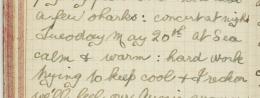 a few sharks: concert at night
Tuesday May 20th at Sea
calm & warm: hard work
trying to keep cool & I reckon
we'll feel our